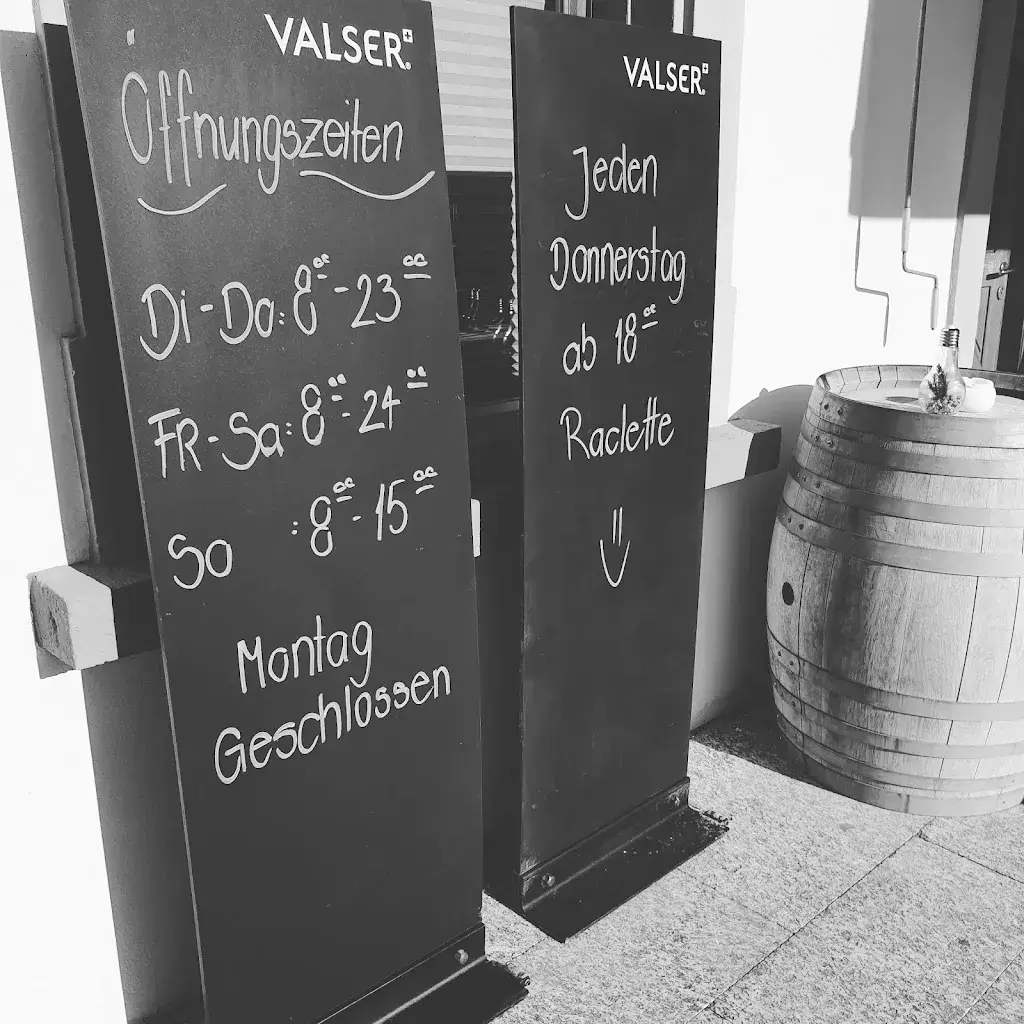 VALSER
Öffnungszeiten
Di-Do: 8⁰⁰-23⁰⁰
FR-Sa: 8⁰⁰-24⁰⁰
So : 8⁰⁰-15⁰⁰
Montag
Geschlossen
VALSER
Jeden
Donnerstag
ab 18⁰⁰
Raclette